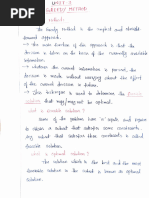 UNIT-3
GREEDY METHOD
Greedy Method:
The Greedy method is the simplest and straight
forward approach.
→ The main function of this approach is that the
decision is made on the basis of the currently available
information.
→ Whatever the current information is present, the
decision is made without worrying about the effect
of the current decision in future.
→ This technique is used to determine the feasible
solution that may/may not be optimal.
what is feasible solution?
of the problem have 'n' inputs and
to obtain a subset that satisfies some constraints.
Any subset that satisfies these constraints is called
feasible solution.
what is optimal solution?
The solution which is the best and the most
favorable solution in the subset is known as optimal
solution.